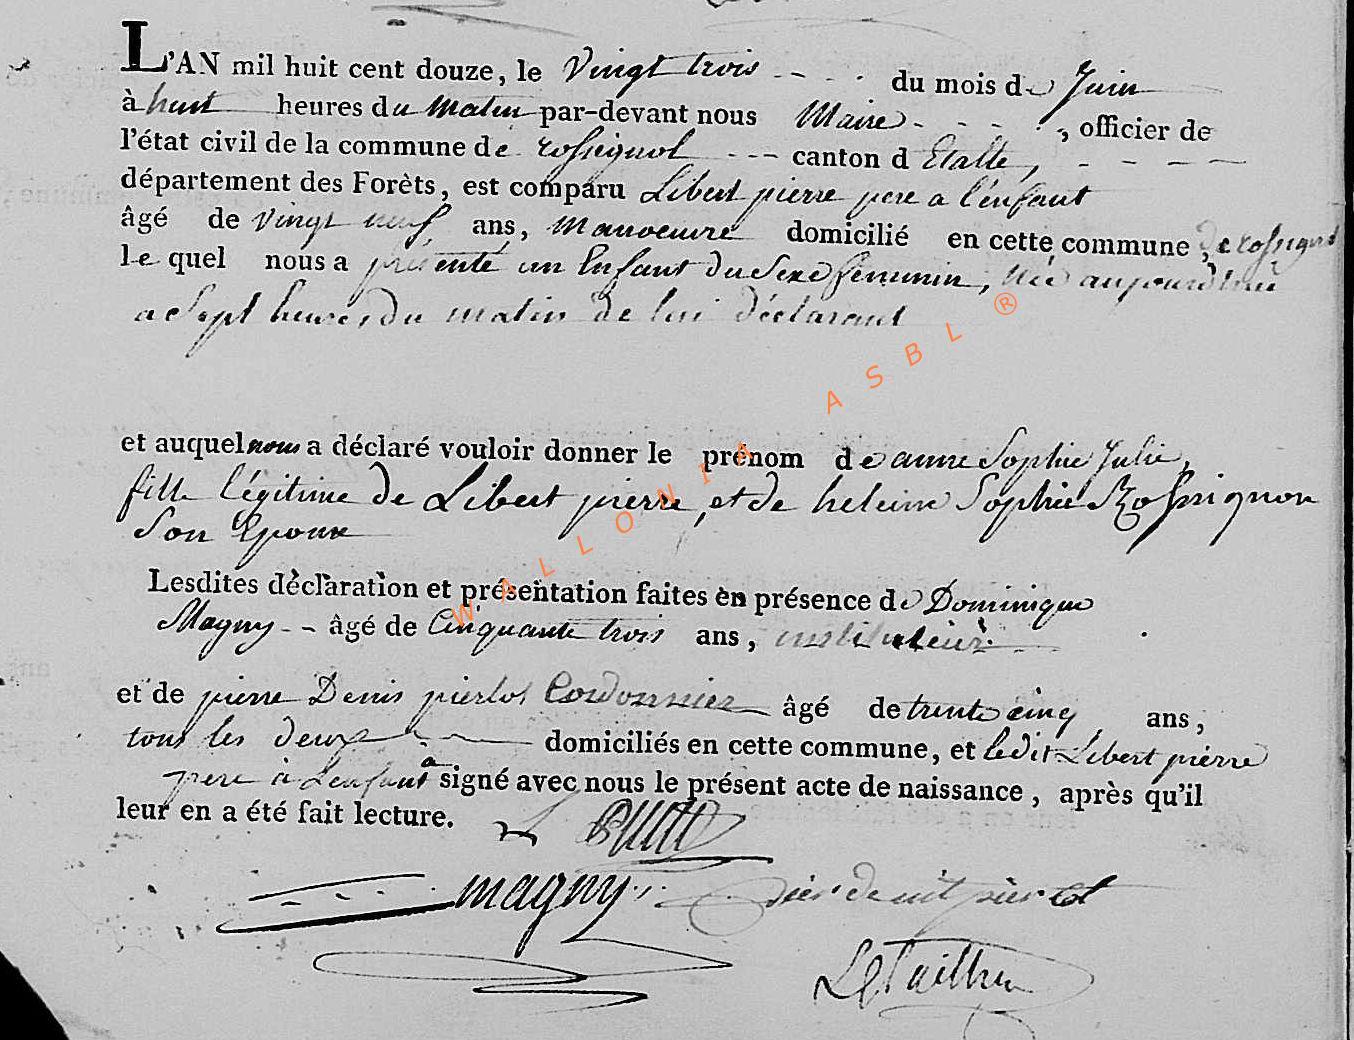 L'AN mil huit cent douze, le Vingt trois - - - - du mois de Juin
à huit heures du matin par-devant nous Maire - - - - , officier de
l'état civil de la commune de rossignol - - - canton d Etalle, - - - -
département des Forèts, est comparu Libert pierre pere a l'enfant
âgé de vingt neuf ans, manoeuvre domicilié en cette commune, de rossignol
le quel nous a présenté un Enfant du Sexe féminin, née aujourd'hui
a Sept heures du matin de lui déclarant
et auquel nous a déclaré vouloir donner le prénom de anne Sophie Julie,
fille légitime de Libert pierre, et de heleine Sophie Rossignon
Son Epouse
Lesdites déclaration et présentation faites en présence de Dominique
Magny - - âgé de Cinquante trois ans, instituteur
et de pierre Denis pierlot Cordonnier âgé de trente cinq ans,
tous les deux - - domiciliés en cette commune, et ledit Libert pierre
pere à L'enfant a signé avec nous le présent acte de naissance, après qu'il
leur en a été fait lecture.
magny
WALLONIA ASBL ®